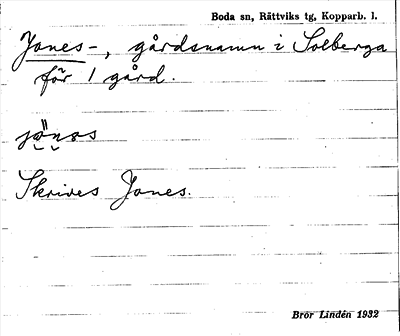 Boda sn, Rättviks tg, Kopparb. l.
Jones-, gårdsnamn i Solberga
för 1 gård.
jönos
Skrives Jones.
Bror Lindén 1932